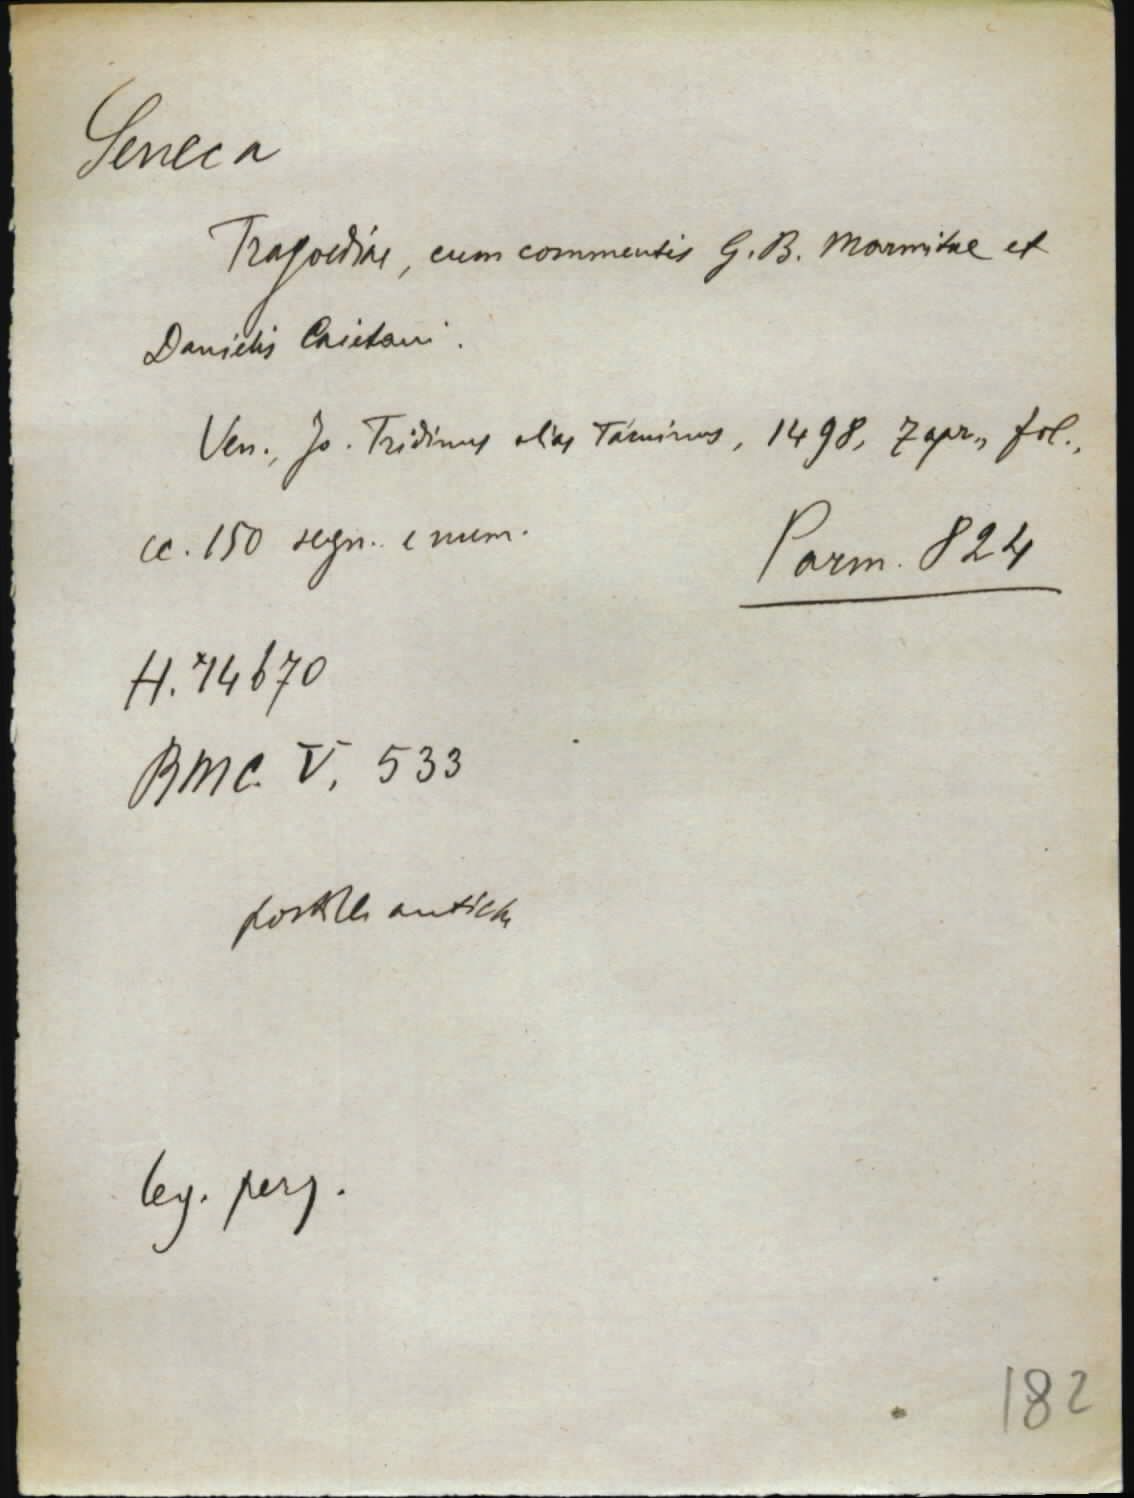 Seneca
Tragoediae, cum commentis G. B. Marmitae et
Danielis Caietani.
Ven., Jo. Tridinus alias Tacuinus, 1498, 7 apr., fol.,
cc. 150 segn. e num.
Parm. 824
H. *14670
BMC. V, 533
postille antiche
leg. perg.
182